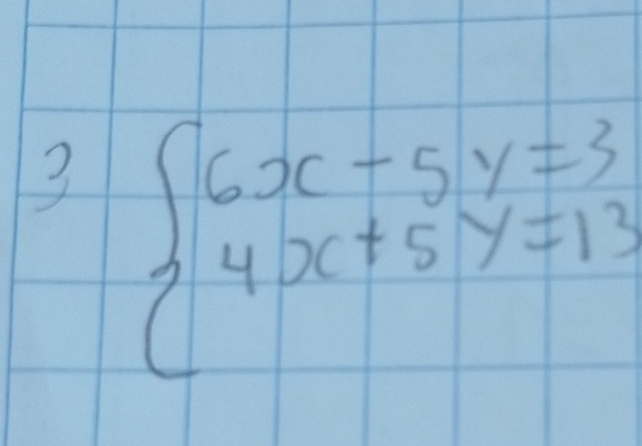 3 { 6x - 5y = 3
4x + 5y = 13